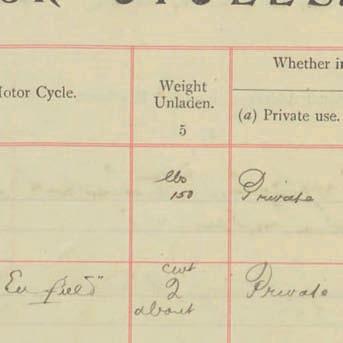 OR CYCLES
Whether in
Motor Cycle.
Weight
Unladen.
(a) Private use.
5
lbs
150
Private
Enfield"
cwt
2
about
Private